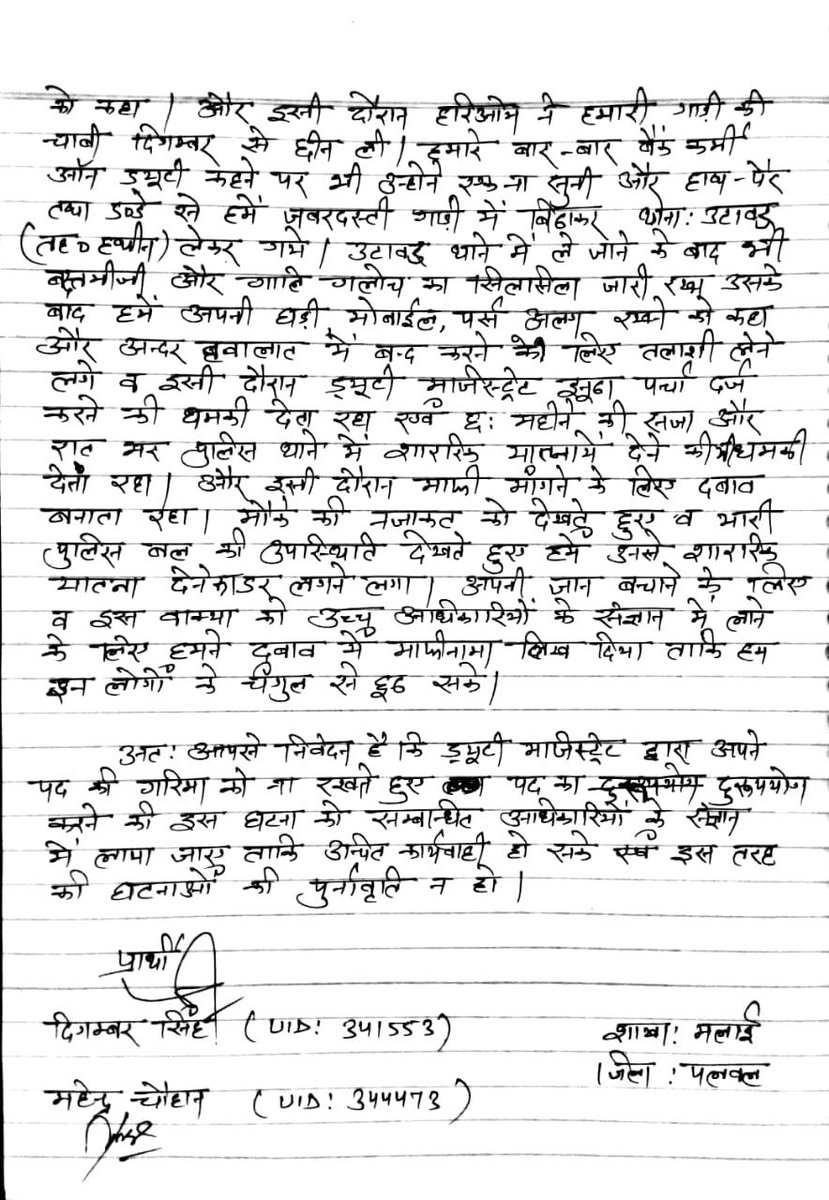 को कहा । और इसी दौरान हरिओम ने हमारी गाड़ी की
चाबी दिगम्बर से छीन ली । हमारे बार-बार बैंक कर्मी
ऑन ड्यूटी कहने पर भी उन्होने एक ना सुनी और हाथ-पैर
तथा डण्डे से हमें जबरदस्ती गाड़ी में बिठाकर थाना: उटावड़
(तह० हथीन) लेकर गये । उटावड़ थाने में ले जाने के बाद भी
बदतमीजी और गालि गलोच का सिलसिला जारी रखा उसके
बाद हमें अपनी घड़ी, मोबाईल, पर्स अलग रखने को कहा
और अन्दर हवालात में बन्द करने के लिए तलाशी लेने
लगे व इसी दौरान ड्यूटी मजिस्ट्रेट झूठा पर्चा दर्ज
करने की धमकी देता रहा एवं छ: महीने की सजा और
रात भर पुलिस थाने में शाररिक यातनायें देने की भी धमकी
देता रहा । और इसी दौरान माफी माँगने के लिए दबाव
बनाता रहा । मौके की नजाकत को देखते हुए व भारी
पुलिस बल की उपस्थिति देखते हुए हमें उनसे शाररिक
यातना देने का डर लगने लगा । अपनी जान बचाने के लिए
व इस वाक्या को उच्च अधिकारियों के संज्ञान में लाने
के लिए हमने दबाव में माफीनामा लिख दिया ताकि हम
इन लोगों के चंगुल से छूट सके ।
अत: आपसे निवेदन है कि ड्यूटी मजिस्ट्रेट द्वारा अपने
पद की गरिमा को ना रखते हुए पद का दुरूपयोग
करने की इस घटना को सम्बन्धित अधिकारियों के संज्ञान
में लाया जाए ताकि उचित कार्यवाही हो सके एवं इस तरह
की घटनाओं की पुर्नावृति न हो ।
प्रार्थी
दिगम्बर सिंह (UID: 341553) शाखा: मलाई
जिला : पलवल
महेन्द्र चौहान (UID: 344473)